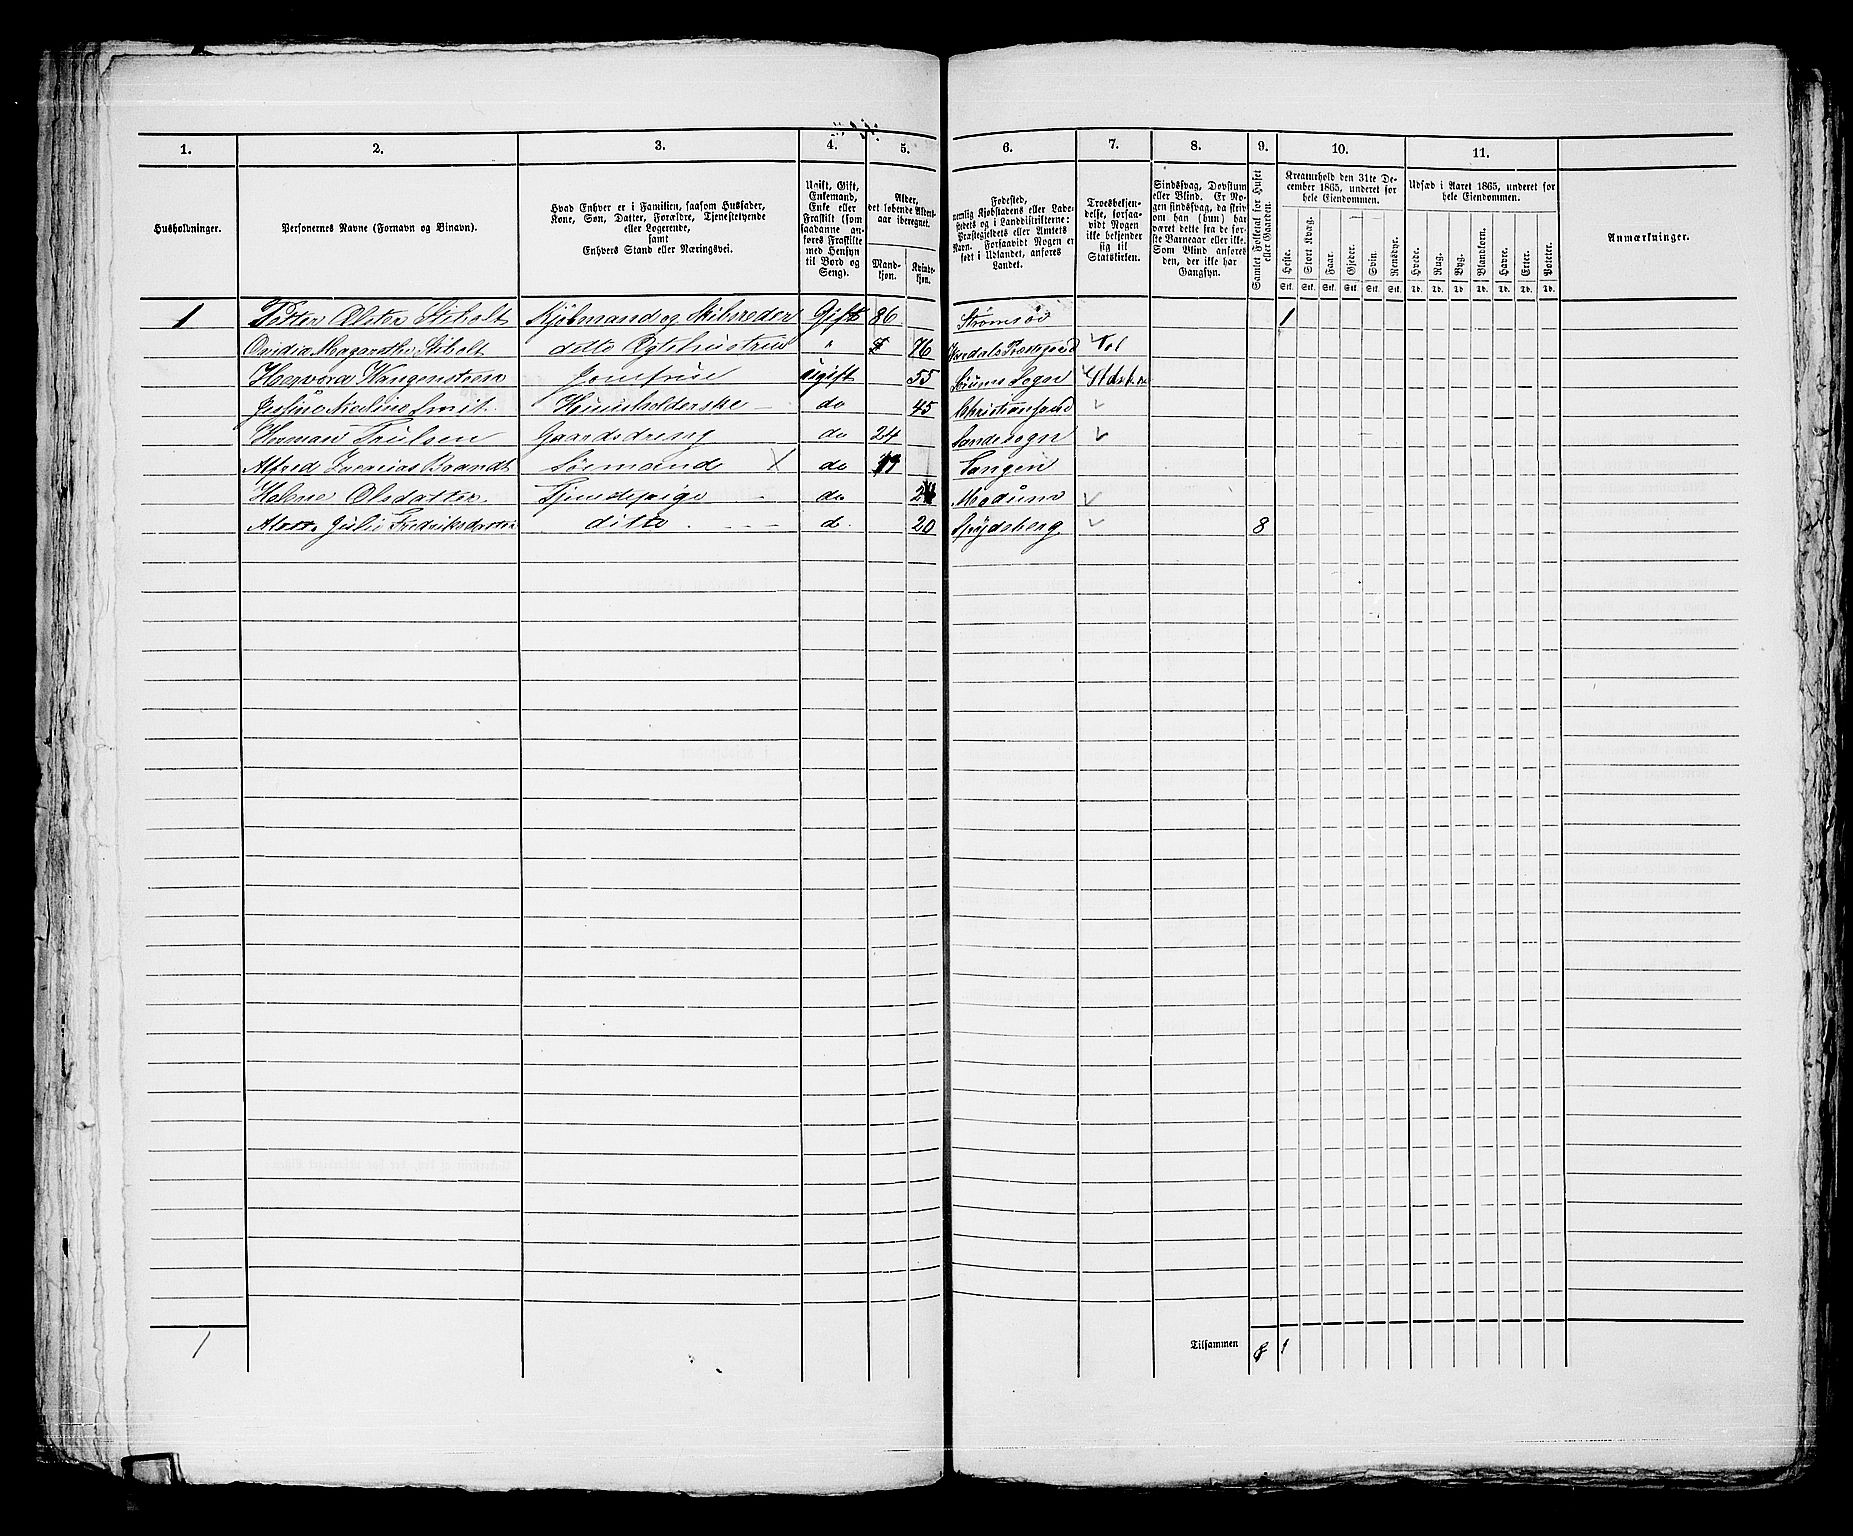 1. 2. 3. 4. 5. 6. 7. 8. 9. 10. 11.
Husholdninger.
Personernes Navne (Fornavn og Binavn).
Hvad Enhver er i Familien, saasom Husfader,
Kone, Søn, Datter, Forældre, Tjenestetyende
eller Logerende,
samt
Enhvers Stand eller Næringsvei.
Ugift, Gift,
Enkemand,
Enke eller
Fraskilt (som
saadanne an-
føres Fraskilte
med Hensyn
til Bord og
Seng).
Alder,
det løbende Alders-
aar iberegnet.
Mand-
kjøn.
Kvinde-
kjøn.
Fødested,
nemlig Kjøbstadens eller Lade-
stedets og i Landdistrikterne:
Præstegjeldets eller Amtets
Navn. Forsaavidt Nogen er
født i Udlandet, anføres
Landet.
Troesbekjen-
delse, forsaa-
vidt Nogen
ikke bekjender
sig til
Statskirken.
Sindssvag, Døvstum
eller Blind. Er No-
gen sindssvag, da skrives
om han (hun) har
været dette fra de før-
ste Barneaar eller ikke.
Som Blind anføres
den, der ikke har
Gangsyn.
Samlet Folketal for Huset
eller Gaarden.
Kreaturhold den 31te De-
cember 1865, underet for
hele Eiendommen.
Heste. Stort Kvæg. Faar. Gjeder. Svin. Rensdyr.
Stk. Stk. Stk. Stk. Stk. Stk.
Udsæd i Aaret 1865, underet for
hele Eiendommen.
Hvede. Rug. Byg. Blandkorn. Havre. Erter. Poteter.
Td. Td. Td. Td. Td. Td. Td.
Anmærkninger.
1 Petter Stibolt Kjøbmand og Skibsreder Gift 86 Strømsøe 1
Ovidia Margarethe Stibolt ditto Egtehustrue " 76
Hervora Wangensteen Jomfrue Ugift 55 Sørums Sogn
Nicoline Smit. Huusholderske do 45 Christiansand
Herman Trulsen Gaardsdreng do 24 Sandesogn
Alfred Zacarias Brandt Sømand X do 19 Tangen
Helene Olsdatter. Tjenestepige do Modum
Julie Fredriksdatter ditto. d. 20 Spydeberg 8
1 Tilsammen 8 1